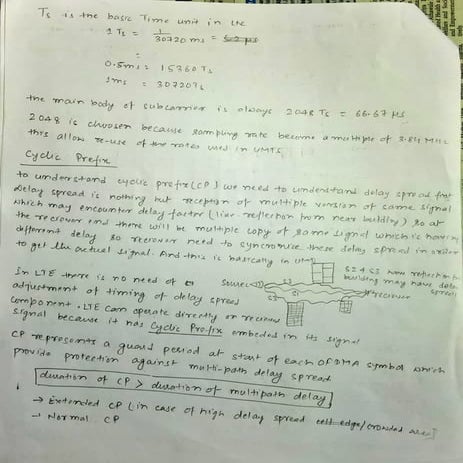 Ts is the basic Time unit in LTE
1 Ts = 1/30720 ms =
=
0.5ms = 15360 Ts
1ms = 30720Ts
the main body of subcarrier is always 2048 Ts = 66.67 µs
2048 is choosen because sampling rate become a multiple of 3.84 MHz
this allow re-use of the rates used in UMTS
Cyclic Prefix
to understand cyclic prefix (CP) we need to understand delay spread first
delay spread is nothing but reception of multiple version of same signal
which may encounter delay factor (like reflection from near building) so at
the receiver end there will be multiple copy of same signal which is having
different delay so receiver need to syncronize these delay spread in order
to get the actual signal. And this is basically in UMTS
In LTE there is no need of
adjustment of timing of delay spread
component. LTE can operate directly on received
signal because it has Cyclic Prefix embeded in its signal
Source
S2 & S3 now reflection from
building may have delay
spread
receiver
CP represents a guard period at start of each OFDMA symbol which
provide protection against multi-path delay spread
duration of CP > duration of multipath delay
→ Extended CP (in case of high delay spread cell edge/crowded area)
→ Normal CP